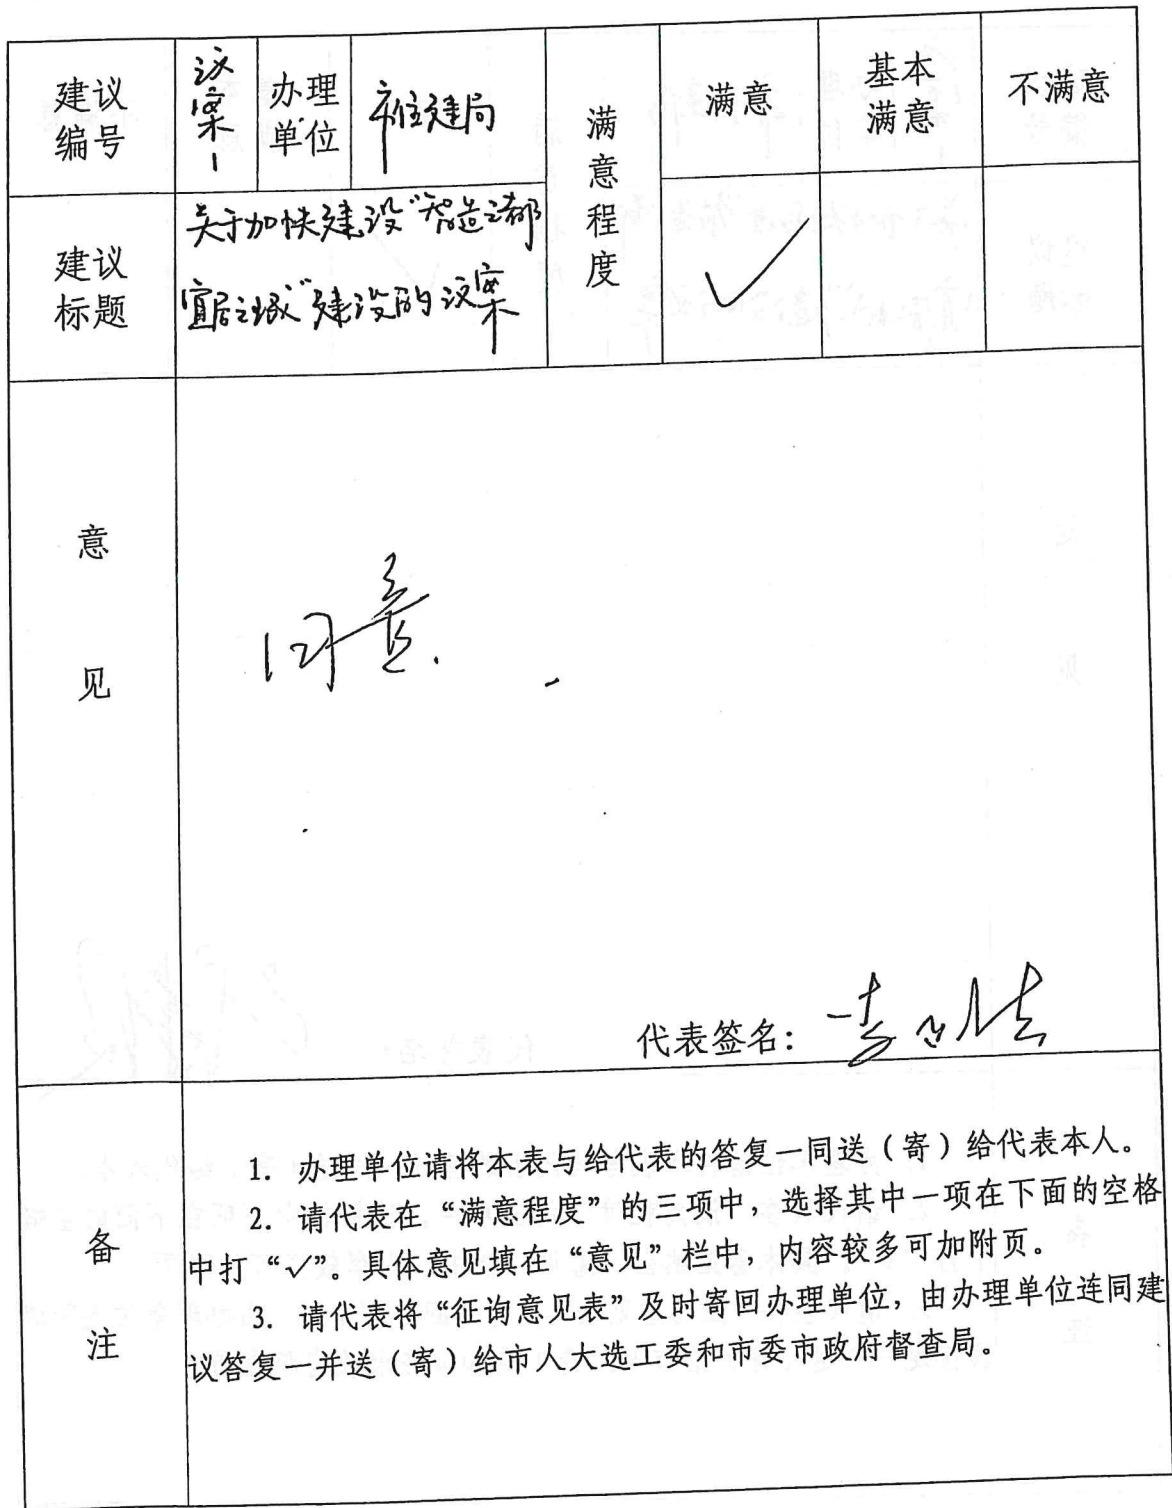 建议编号 议案1 办理单位 市住建局 满意程度 满意 基本满意 不满意
建议标题 关于加快建设“智造之都
宜居之城”建设的议案 ✓
意见
同意.
代表签名：李
备注
1. 办理单位请将本表与给代表的答复一同送（寄）给代表本人。
2. 请代表在“满意程度”的三项中，选择其中一项在下面的空格
中打“√”。具体意见填在“意见”栏中，内容较多可加附页。
3. 请代表将“征询意见表”及时寄回办理单位，由办理单位连同建
议答复一并送（寄）给市人大选工委和市委市政府督查局。